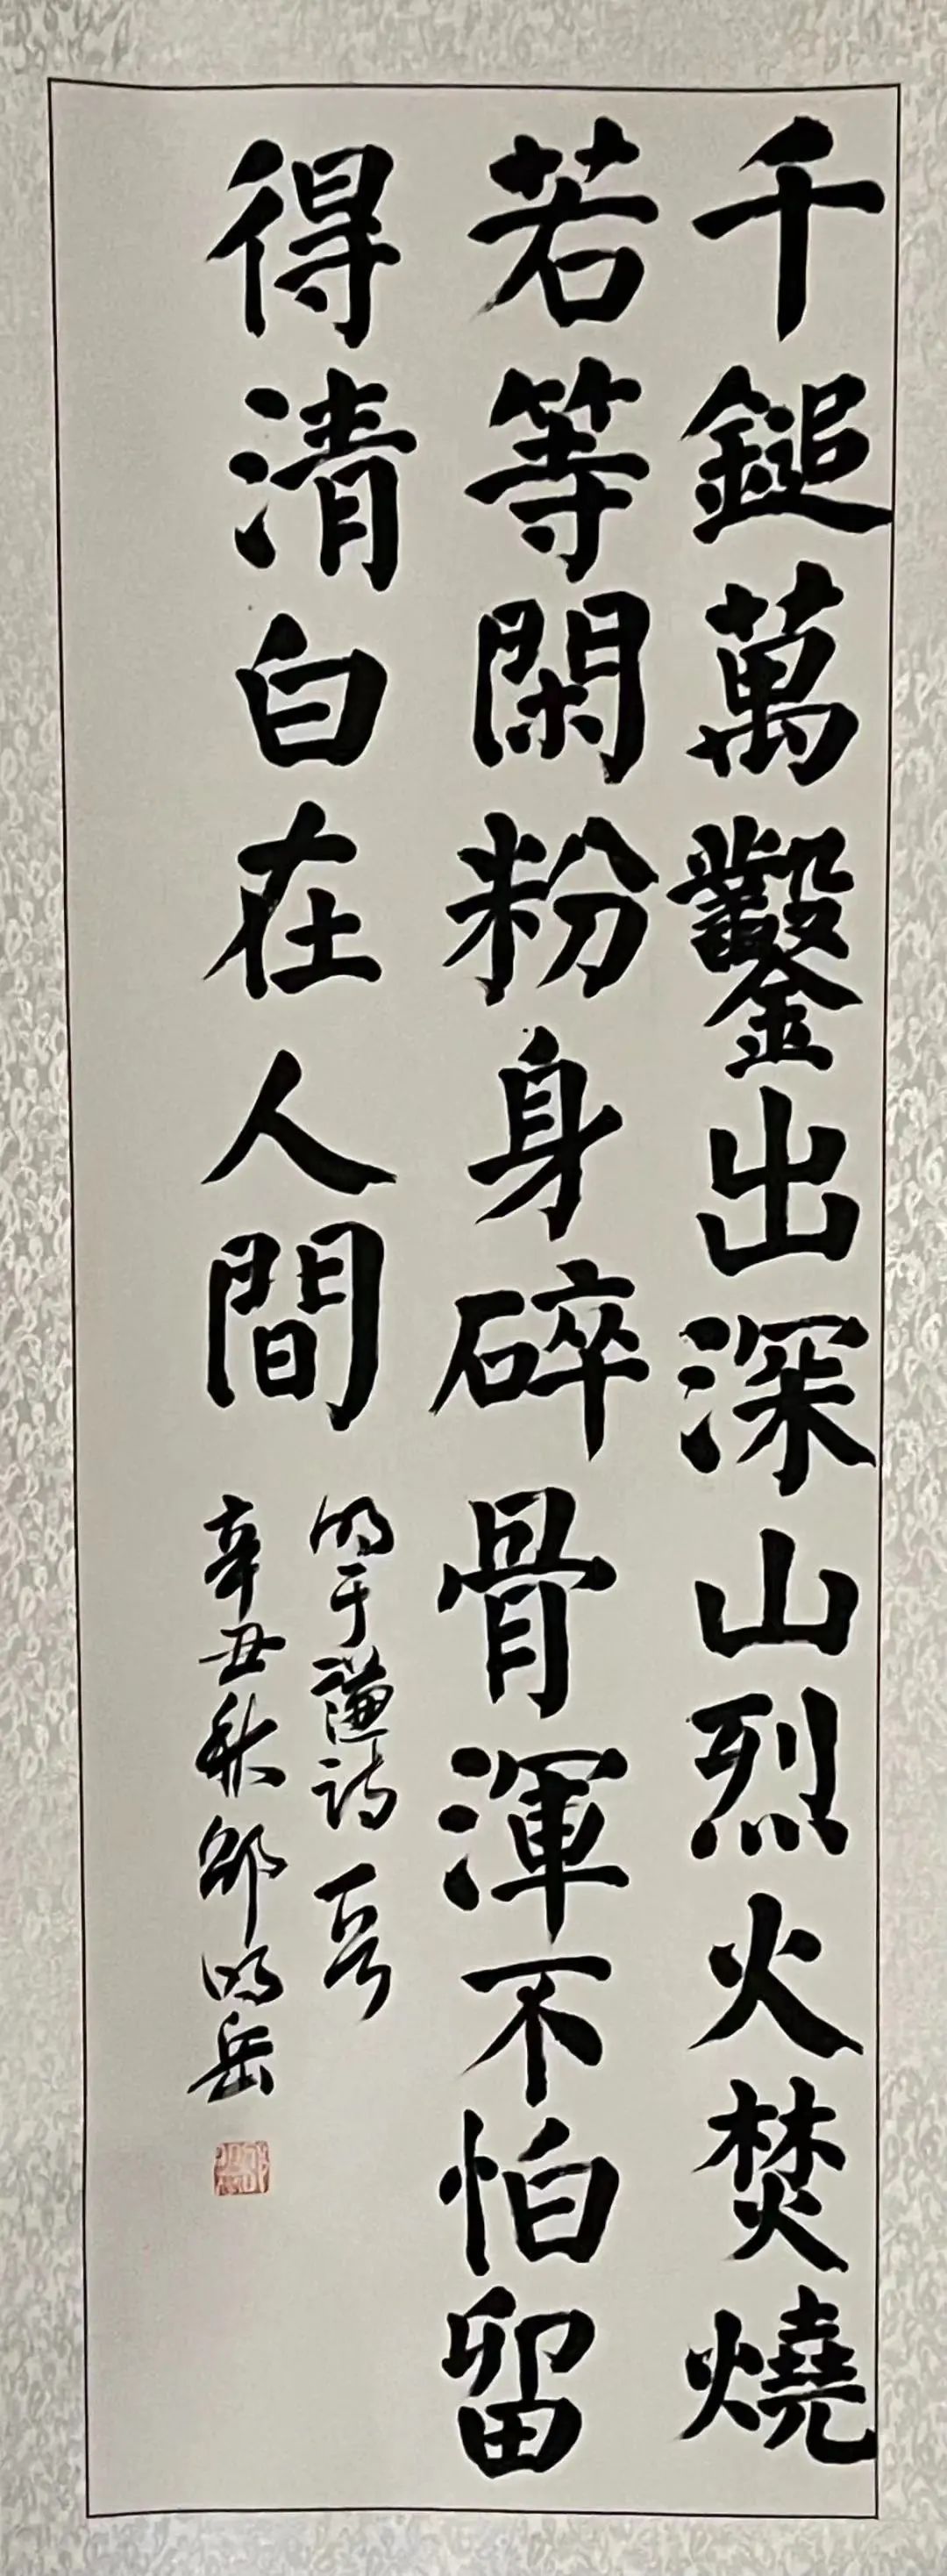 千鎚萬鑿出深山烈火焚燒
若等閑粉身碎骨渾不怕留
得清白在人間
明于謙詩一首
辛丑秋邵明岳